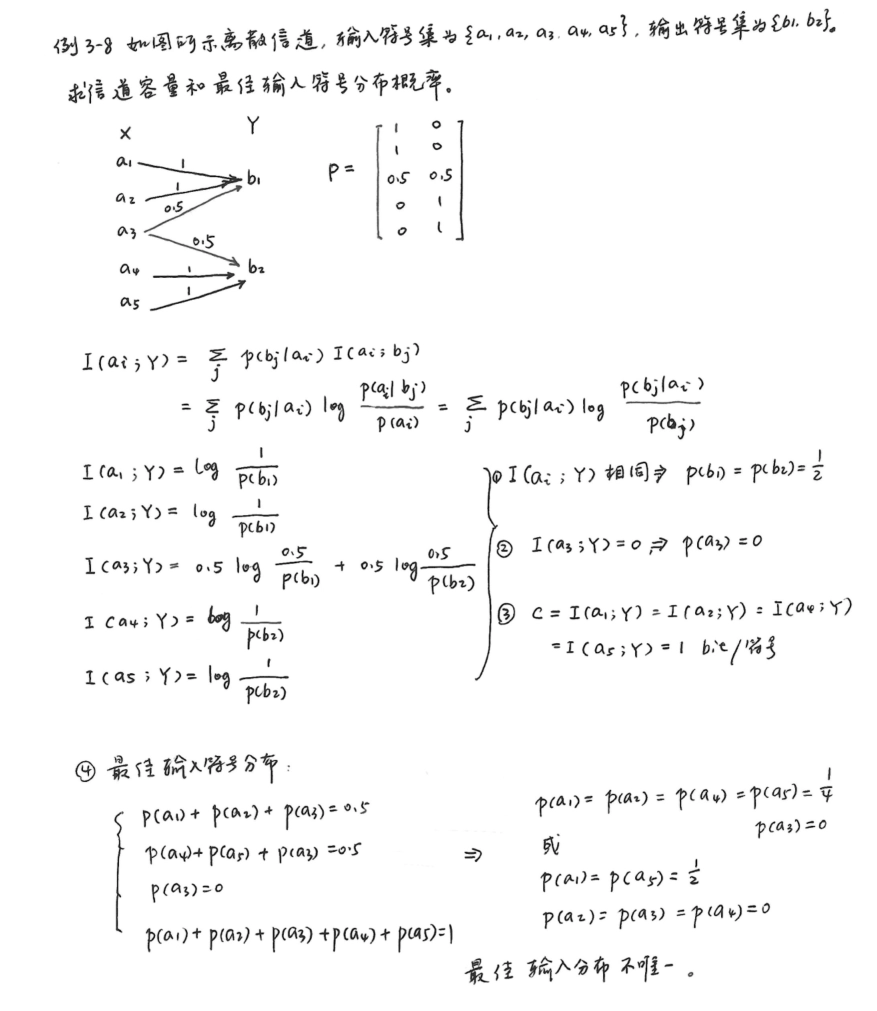 例3-8 如图所示离散信道，输入符号集为{a1, a2, a3, a4, a5}，输出符号集为{b1, b2}。
求信道容量和最佳输入符号分布概率。
X Y
a1 1
a2 1 b1
0.5
a3
0.5
a4 1 b2
a5 1
P = [ 1 0
1 0
0.5 0.5
0 1
0 1 ]
I(ai; Y) = Σj p(bj|ai) I(ai; bj)
= Σj p(bj|ai) log p(ai|bj)/p(ai) = Σj p(bj|ai) log p(bj|ai)/p(bj)
I(a1; Y) = log 1/p(b1)
I(a2; Y) = log 1/p(b1)
I(a3; Y) = 0.5 log 0.5/p(b1) + 0.5 log 0.5/p(b2)
I(a4; Y) = log 1/p(b2)
I(a5; Y) = log 1/p(b2)
① I(ai; Y) 相同 ⇒ p(b1) = p(b2) = 1/2
② I(a3; Y) = 0 ⇒ p(a3) = 0
③ C = I(a1; Y) = I(a2; Y) = I(a4; Y)
= I(a5; Y) = 1 bit/符号
④ 最佳输入符号分布：
p(a1) + p(a2) + p(a3) = 0.5
p(a4) + p(a5) + p(a3) = 0.5
p(a3) = 0
p(a1) + p(a2) + p(a3) + p(a4) + p(a5) = 1
⇒
p(a1) = p(a2) = p(a4) = p(a5) = 1/4
p(a3) = 0
或
p(a1) = p(a5) = 1/2
p(a2) = p(a3) = p(a4) = 0
最佳输入分布不唯一。